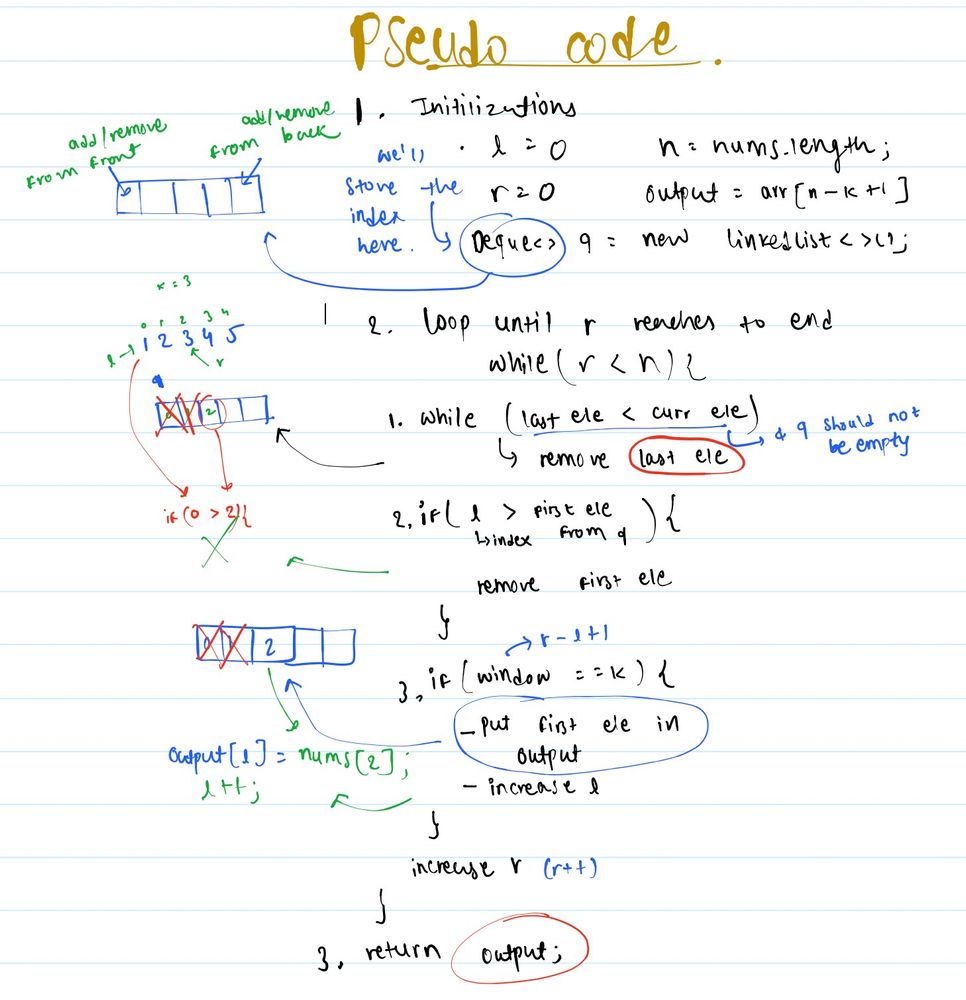 Pseudo code.
1. Initilizations
add/remove from front
add/remove from back
we'll store the index here.
. l = 0
n = nums.length;
r = 0
output = arr[n-k+1]
Deque<> q = new linkedlist<>();
k = 3
0 1 2 3 4
l → 1 2 3 4 5
r
q
0 1 2
if (0 > 2){
2. loop until r reaches to end
while (r < n) {
1. while (last ele < curr ele)
& q should not be empty
remove last ele
2. if( l > first ele from q ) {
index
remove first ele
}
0 1 2
r-l+1
3. if (window == k) {
- put first ele in
output
output[l] = nums[2];
l++;
- increase l
}
increase r (r++)
}
3. return output;